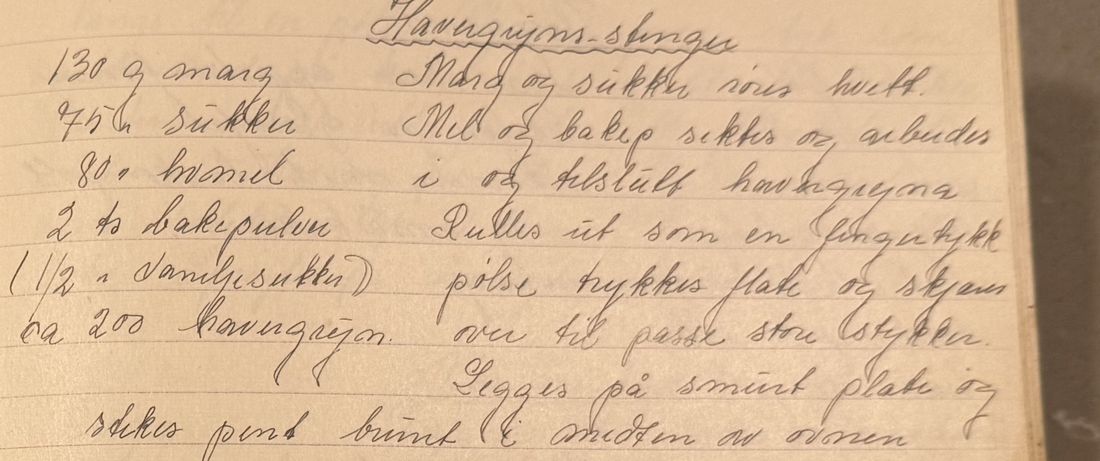 Havregryns-stenger
130 g marg Marg og sukker røres hvitt.
75 " sukker Mel og bakep siktes og arbeides
80 " hvmel i og tilslutt havregryna
2 ts bakepulver Rulles ut som en fingertykk
(1/2 " Vaniljesukker) pølse trykkes flate og skjæres
ca 200 havregryn. over til passe store stykker.
Legges på smurt plate og
stekes pent brunt i midten av ovnen